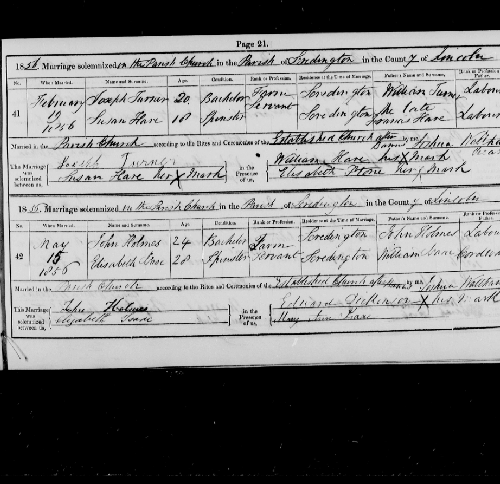 Page 21.
1856. Marriage solemnized in the Parish Church in the Parish of Sredington in the County of Lincoln
No. When Married. Name and Surname. Age Condition. Rank or Profession. Residence at the Time of Marriage. Father's Name and Surname. Rank or Profession of
41 February 19 1856 Joseph Turner 20 Bachelor Farm Servant Sredington William Turner Labour
Susan Hare 18 Spinster Sredington the late Hare Labour
Married in the Parish Church according to the Rites and Ceremonies of the Established Church after Banns by me Joshua
This Marriage was solemnized between us, Joseph Turner in the Presence of us, William Hare his X Mark
Susan Hare her X Mark Elisabeth her X Mark
1856. Marriage solemnized in the Parish Church in the Parish of Sredington in the County of Lincoln
No. When Married. Name and Surname. Age Condition. Rank or Profession. Residence at the Time of Marriage. Father's Name and Surname. Rank or Profession
42 May 15 1856 John Holmes 24 Bachelor Farm Servant Sredington John Holmes Labour
Elisabeth 28 Spinster Sredington William
Married in the Parish Church according to the Rites and Ceremonies of the Established Church after Banns by me Joshua
This Marriage was solemnized between us, John Holmes in the Presence of us, Edward Dickenson X his Mark
Elizabeth Mary Ann